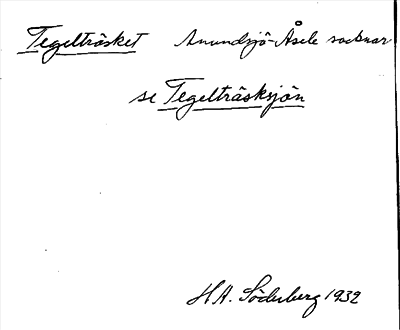 Tegelträsket Anundsjö-Åsele socknar
se Tegelträsksjön
H.A. Söderberg 1932